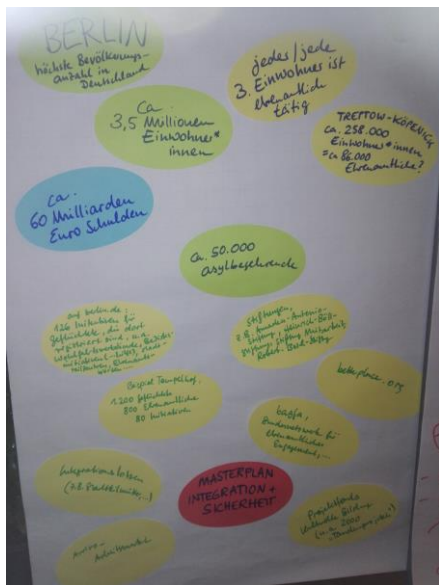 BERLIN
höchste Bevölkerungs-
anzahl in
Deutschland
jedes/jede
3. Einwohner ist
ehrenamtlich
tätig
ca.
3,5 Millionen
Einwohner*
innen
TREPTOW-KÖPENICK
ca. 258.000
Einwohner*innen
= ca. 86.000
Ehrenamtliche?
ca.
60 Milliarden
Euro Schulden
ca. 50.000
asylbegehrende
126 Initiativen für
geflüchtete, die dort
sind, u.a.
Stiftungen,
z.B. Amadeu-Antonio-
Stiftung, Heinrich-Böll-
Stiftung, Stiftung Mitarbeit,
Robert-Bosch-Stiftung
Beispiel Tempelhof,
1.200 geflüchtete
800 Ehrenamtliche
80 Initiativen
betterplace.org
bagfa,
Bundesnetzwerk für
Ehrenamtliches
Engagement, ...
Integrationslotsen
(z.B. Stadtteilmütter, ...)
MASTERPLAN
INTEGRATION +
SICHERHEIT
Projektfonds
kulturelle Bildung